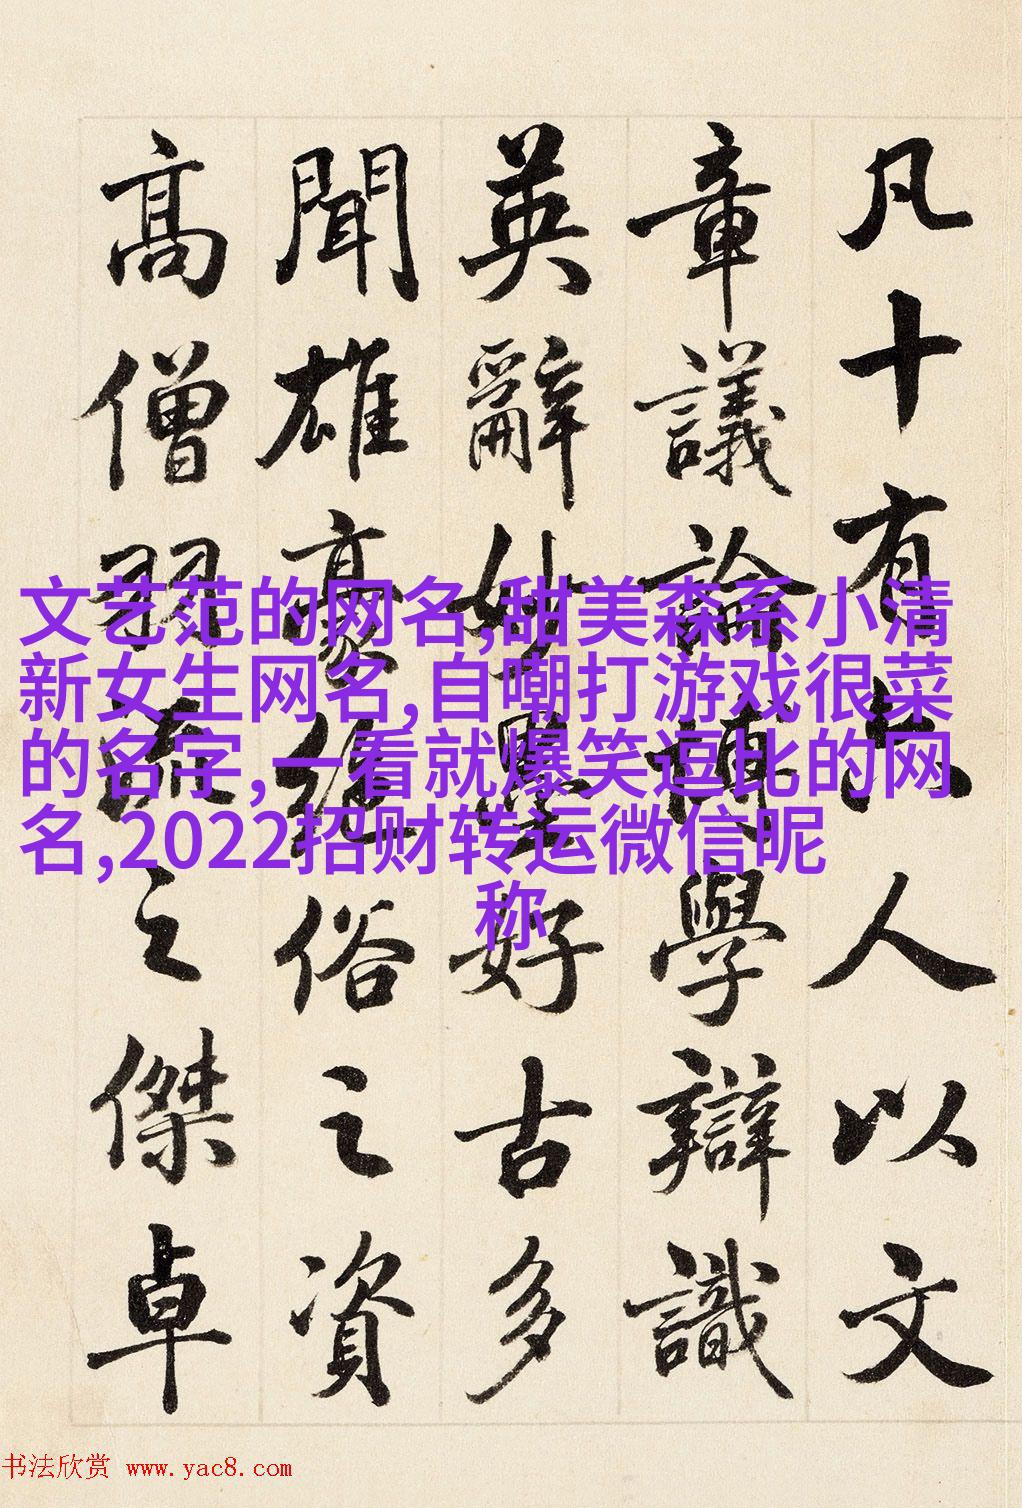 凡十有六人以文
章議論博學辯識
英辭妙墨好古多
聞雄豪絕俗之資
高僧羽流之傑卓
文艺范的网名,甜美森系小清
新女生网名,自嘲打游戏很菜
的名字,一看就爆笑逗比的网
名,2022招财转运微信昵
称
书法欣赏 www.yac8.com